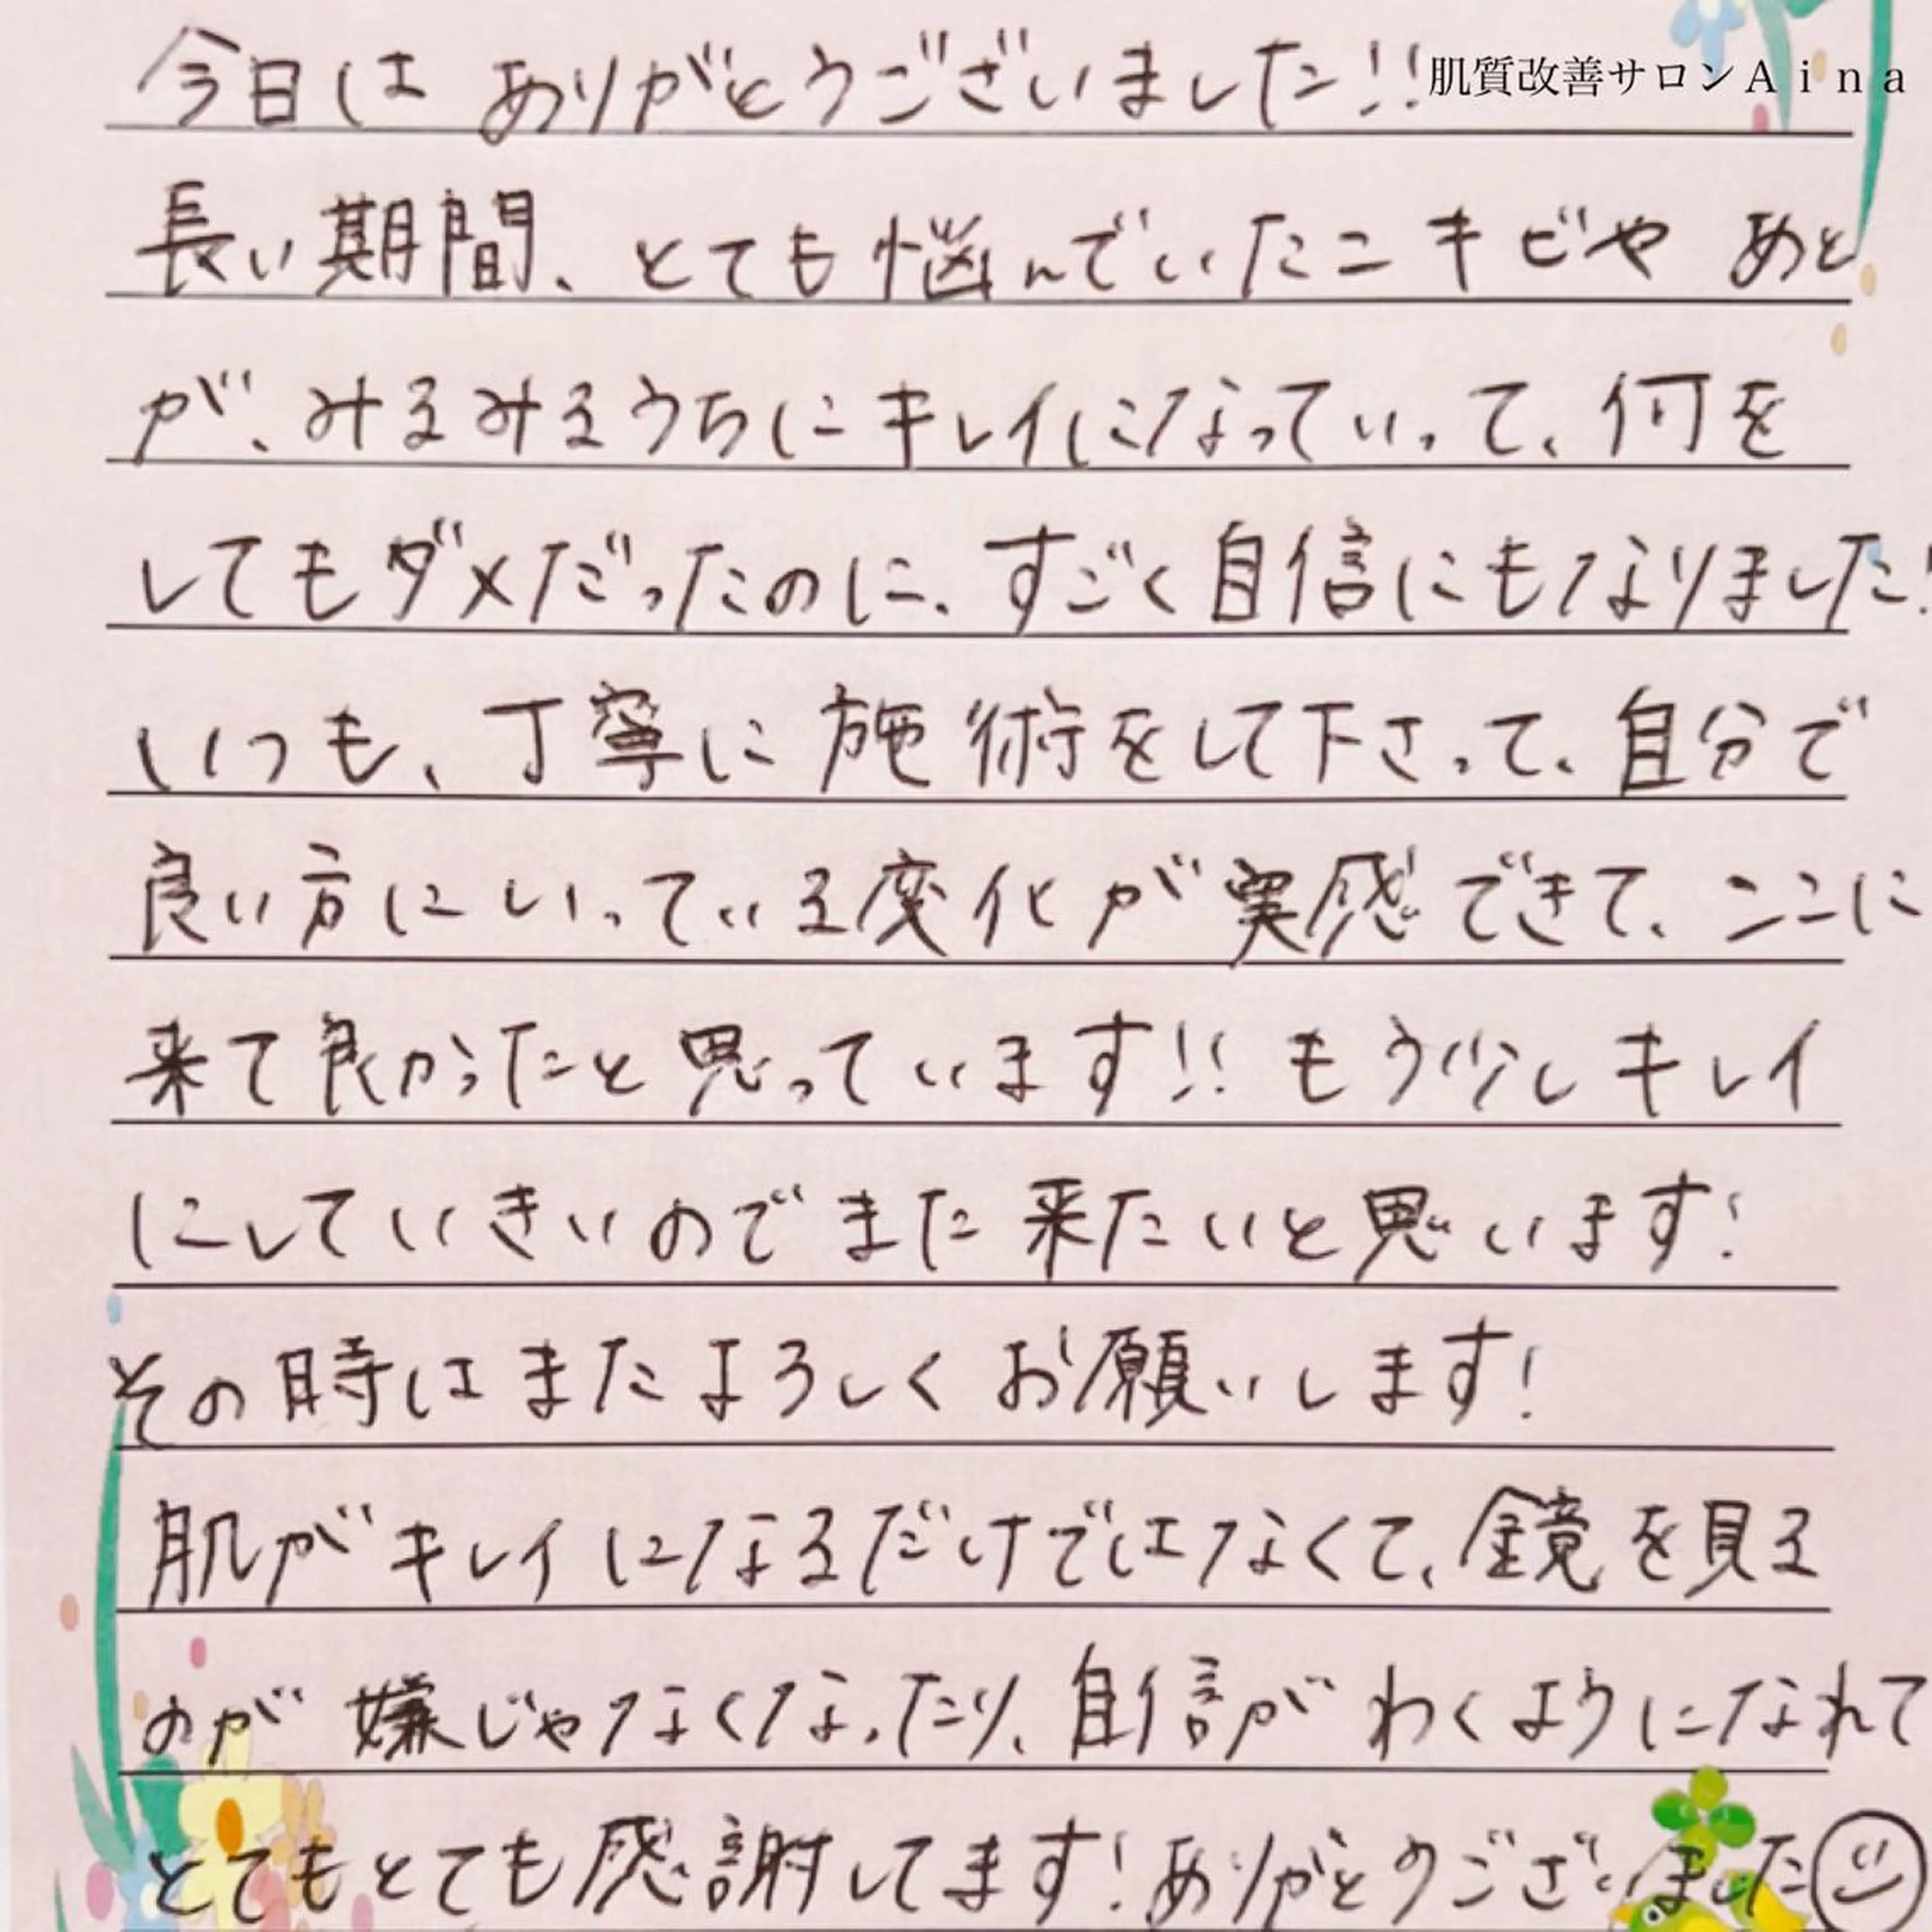 今日は ありがとうございました!! 肌質改善サロンAina
長い期間、とても悩んでいたニキビや あと
が、みるみるうちにキレイになっていって、何を
してもダメだったのに、すごく自信にもなりました!
いつも、丁寧に施術をして下さって、自分で
良い方にいっている変化が実感できて、ここに
来て良かったと思っています!! もう少しキレイ
にしていきいのでまた来たいと思います!
その時はまたよろしくお願いします!
肌がキレイになるだけではなくて、鏡を見る
のが嫌じゃなくなったり、自信がわくようになれて
とてもとても感謝してます!ありがとうございました